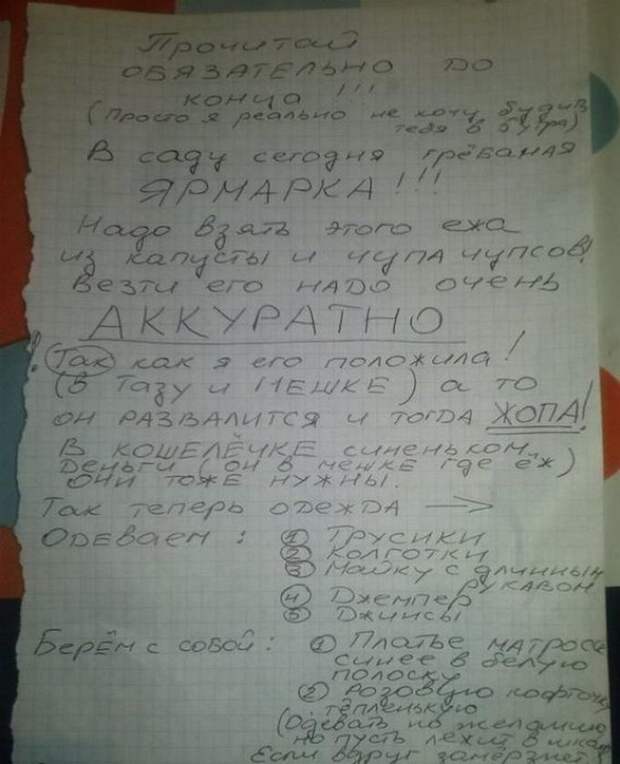 Прочитай
ОБЯЗАТЕЛЬНО ДО
конца!!!
(Просто я реально не хочу будить
тебя в 6 утра)
В саду сегодня грёбаная
ЯРМАРКА!!!
Надо взять этого ежа
из капусты и чупа чупсов!
Везти его НАДО очень
АККУРАТНО
! Так как я его положила!
(В ТАЗУ и МЕШКЕ) а то
он РАЗВАЛИТСЯ и тогда ЖОПА!
В кошелёчке синеньком
деньги (он в мешке где ёж)
они тоже нужны.
Так теперь одежда →
Одеваем: ① Трусики
② Колготки
③ Майку с длинным
рукавом
④ Джемпер
⑤ Джинсы
Берём с собой: ① Платье матроса
синее в белую
полоску
② Розовую кофточку
тёпленькую
(Одевать по желанию
но пусть лежит в шкафу
Если вдруг замёрзнет)